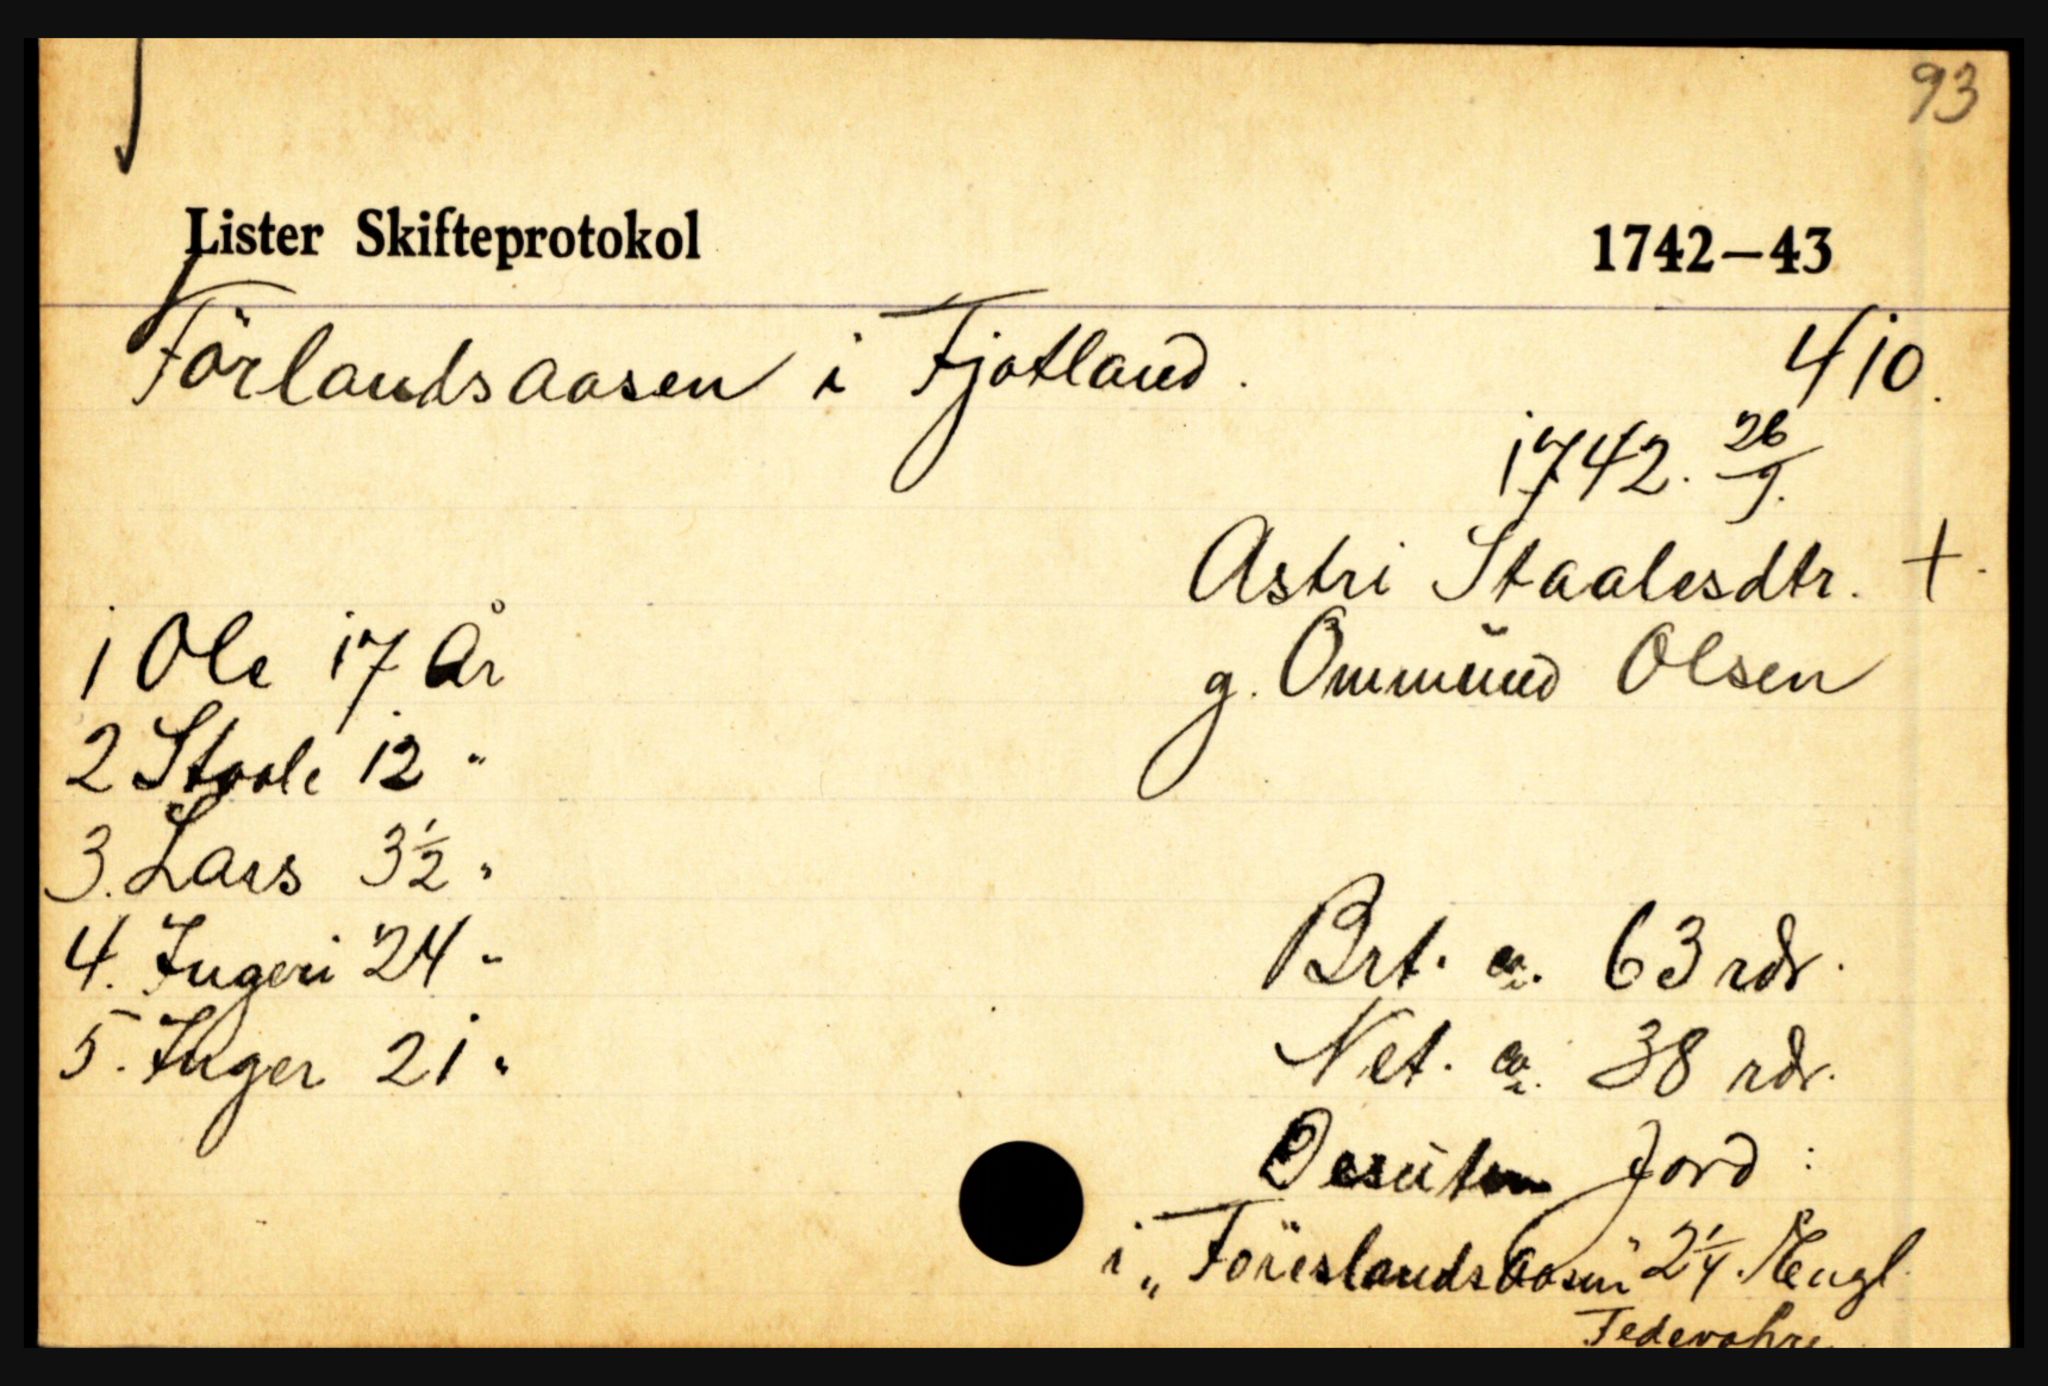 93
Lister Skifteprotokol 1742–43
Förlandsaasen i Fjotland. 410.
1742. 26/9.
Astri Staalesdtr. +.
g. Ommund Olsen
1 Ole 17 År
2 Staale 12 "
3. Lars 3½ "
4. Ingeri 24 "
5. Inger 21 "
Brt. ca. 63 rdr.
Net. ca. 38 rdr.
Desuten Jord:
i „Föreslandsaasen" 2¼ Engl.